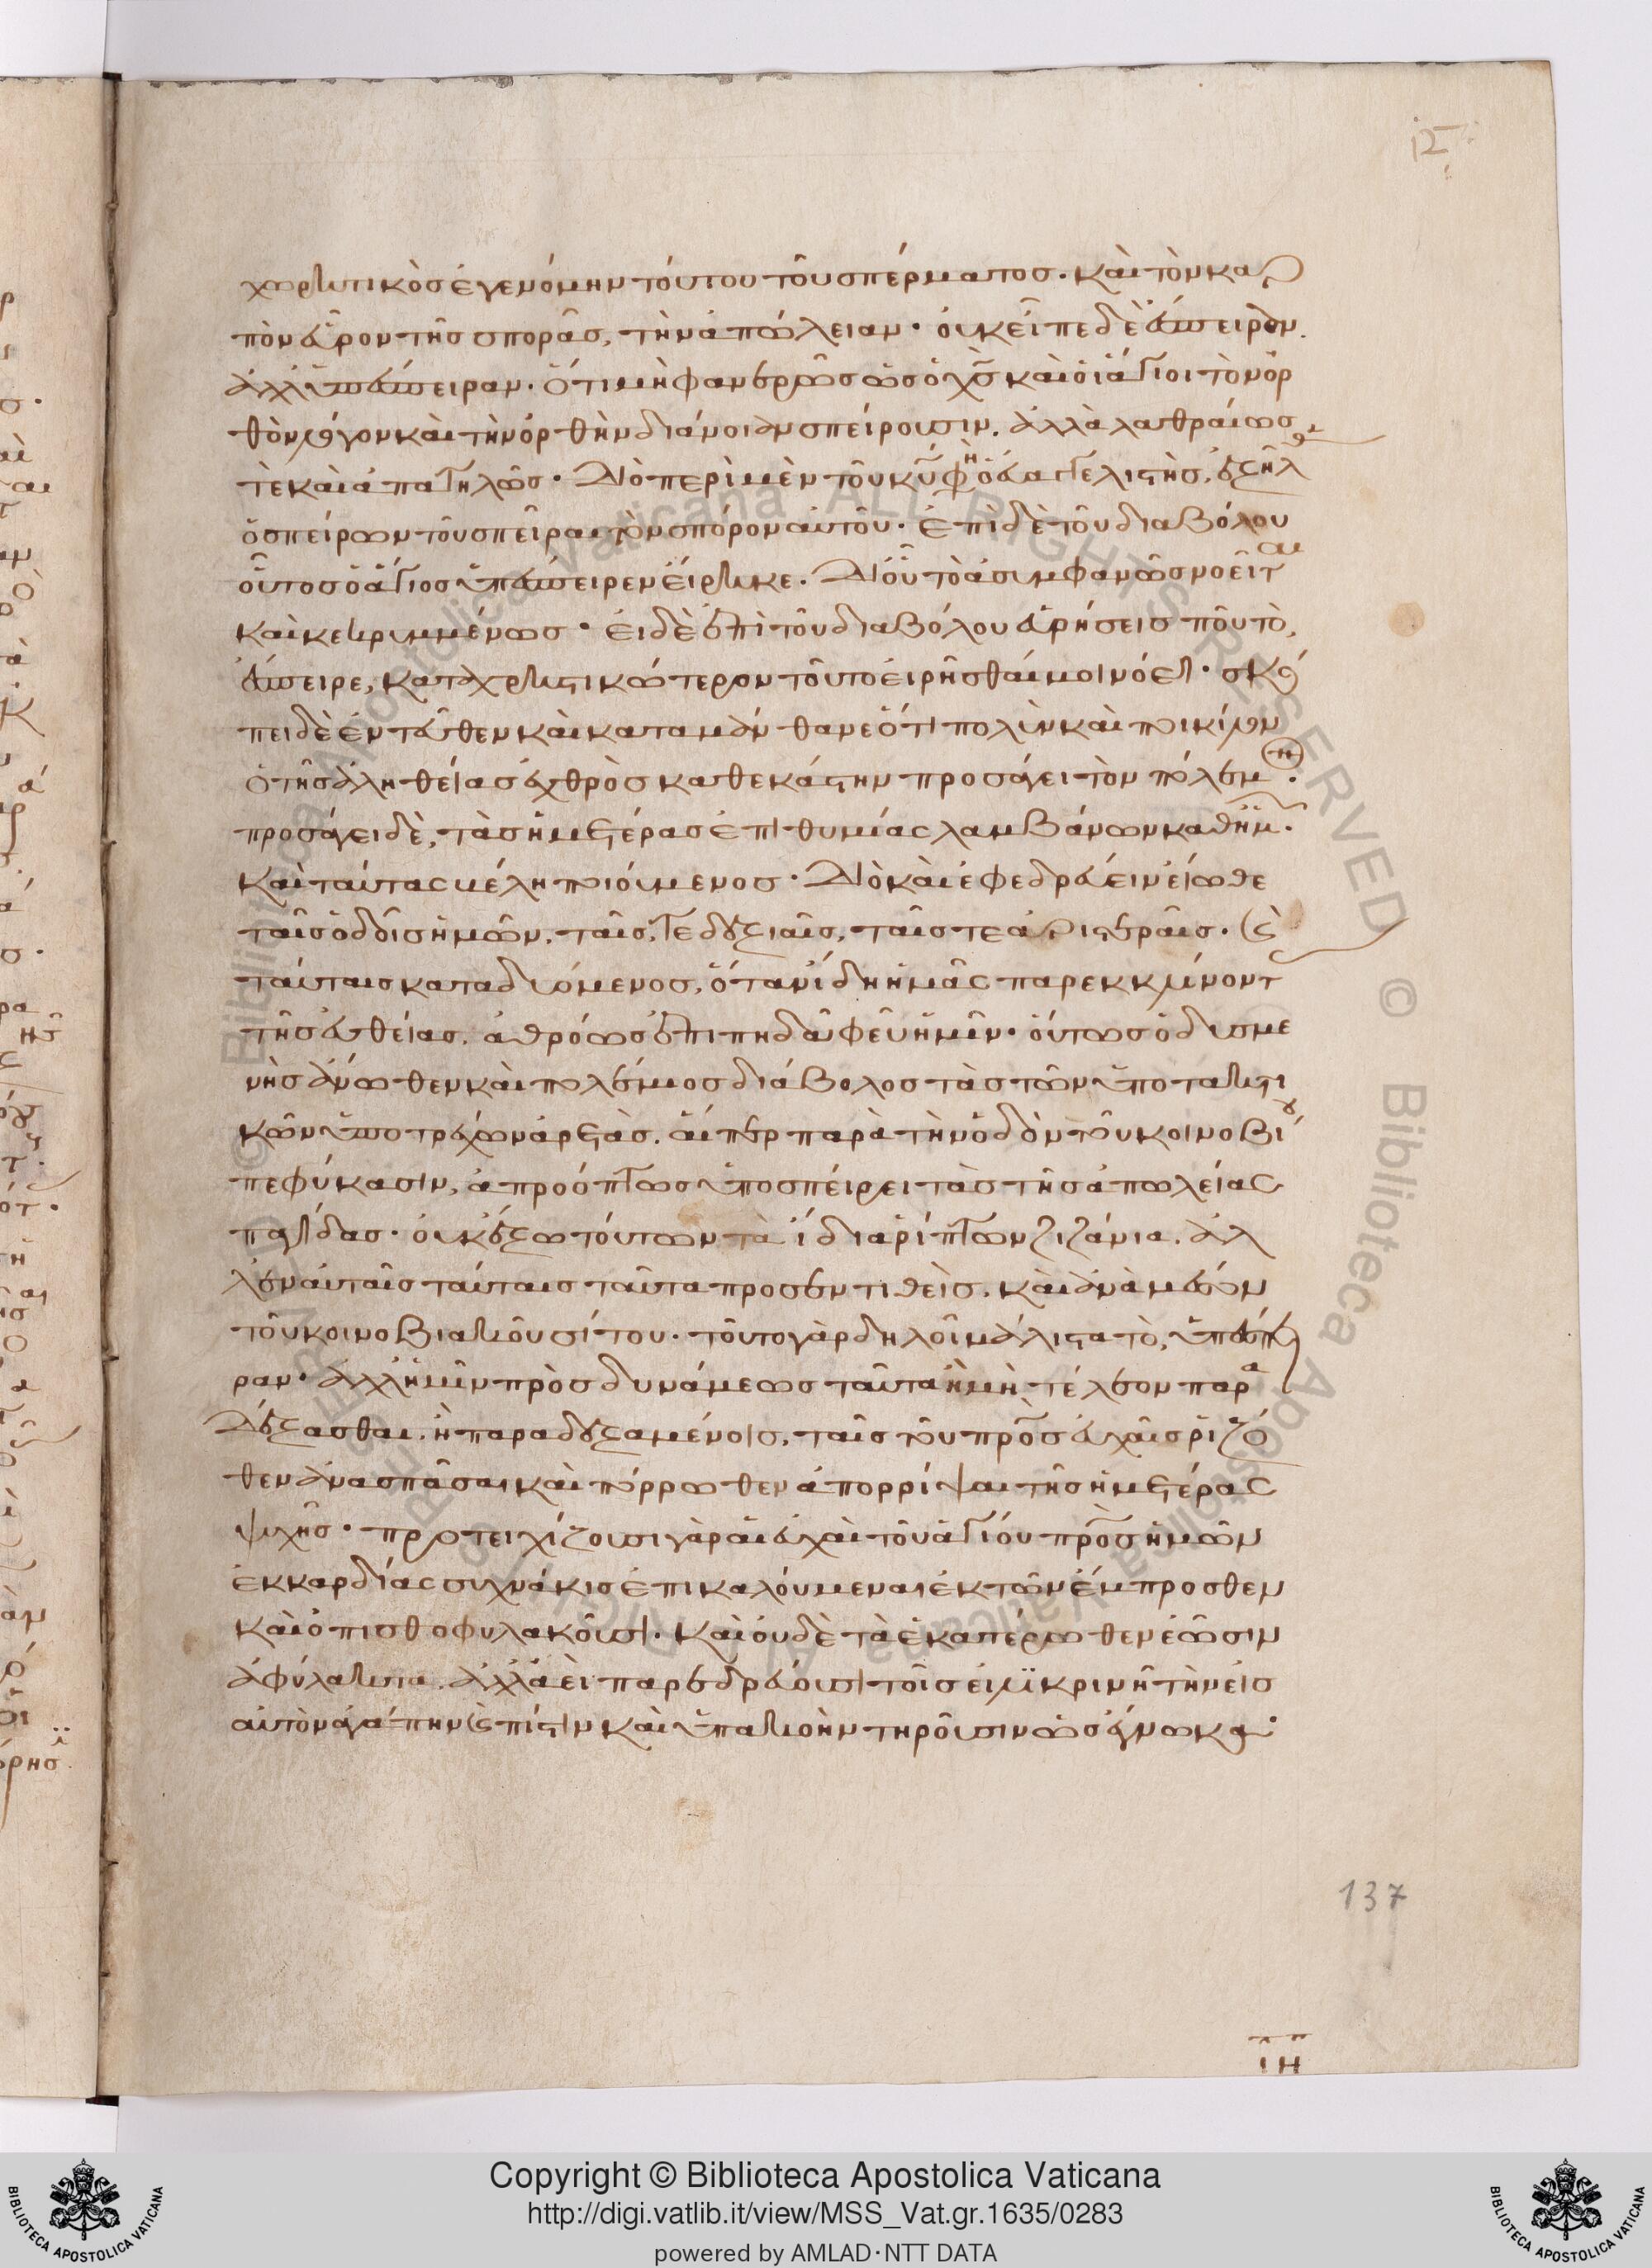 ιζ
χωρητικὸς ἐγενόμην τούτου τοῦ σπέρματος· καὶ τὸν καρ
πὸν εὗρον τῆς σπορᾶς, τὴν ἀπώλειαν· οὐκ εἶπε δὲ ἔσπειρεν.
ἀλλ' ὑπέσπειραν· ὅτι μὴ φανερῶς ὡς ὁ χς καὶ οἱ ἅγιοι τὸν ὀρ
θὸν λόγον καὶ τὴν ὀρθὴν διάνοιαν σπείρουσιν. ἀλλὰ λαθραίως
τὲ καὶ ἀπατηλῶς· Διὸ περὶ μὲν τοῦ κυ φη ὁ εὐαγγελιστὴς, ἐξῆλ
ὁ σπείρων τοῦ σπεῖραι τὸν σπόρον αὐτοῦ· ἐπὶ δὲ τοῦ διαβόλου
οὗτος ὁ ἅγιος ὑπέσπειρεν εἴρηκε. Δι' οὗ τὸ ἀσυμφανῶς νοεῖται
καὶ κεκρυμμένως· εἰ δὲ ἐπὶ τοῦ διαβόλου εὑρήσεις που τὸ,
ἔσπειρε, καταχρηστικώτερον τοῦτο εἰρῆσθαί μοι νόει· σκό
πει δὲ ἐντεῦθεν καὶ καταμάνθανε ὅτι πολὺν καὶ ποικίλον
ὁ τῆς ἀληθείας ἐχθρὸς καθεκάστην προσάγει τὸν πόλεμον·
προσάγει δὲ, τὰς ἡμετέρας ἐπιθυμίας λαμβάνων καθ' ἡμῶν·
καὶ ταύτας μέλη ποιούμενος· Διὸ καὶ ἐφεδρεύειν εἴωθε
ταῖς ὁδοῖς ἡμῶν, ταῖς, τε δεξιαῖς, ταῖς τε ἀριστεραῖς· καὶ
ταύταις καταδυόμενος, ὅταν ἴδη ἡμᾶς παρεκκλίνοντ
τῆς εὐθείας, ἀθρόως ἐπιπηδᾷ φεῦ ἡμῖν· οὕτως ὁ δυσμε
νὴς ἄνωθεν καὶ πολέμιος διάβολος τὰς τῶν ὑποτακτι
κῶν ὑποτρέχων ἀρετὰς. αἵπερ παρὰ τὴν ὁδὸν τοῦ κοινοβίου
πεφύκασιν, ἀπροόπτως ὑποσπείρει τὰς τῆς ἀπωλείας
παγίδας· οὐκ ἔξω τούτων τὰ ἴδια ῥίπτων ζιζάνια. ἀλ
λ' ἐν αὐταῖς ταύταις ταῦτα προσεντιθεὶς. καὶ ἀνὰ μέσον
τοῦ κοινοβιακοῦ σίτου· τοῦτο γὰρ δηλοῖ μάλιστα τὸ, ὑπέσπει
ραν· ἀλλ' ἡμῖν πρὸς δυνάμεως ταῦτα ἢ μὴ τέλεον παρα
δέξασθαι. ἢ παραδεξαμένοις, ταῖς τοῦ προς εὐχαῖς ῥιζό
θεν ἀνασπᾶσαι καὶ πόρρωθεν ἀπορρίψαι τῆς ἡμετέρας
ψυχῆς· προτειχίζουσι γὰρ αἱ εὐχαὶ τοῦ ἁγίου προς ἡμῶν
ἐκ καρδίας συχνάκις ἐπικαλούμεναι ἐκ τῶν ἔμπροσθεν
καὶ ὀπισθοφυλακοῦσι· καὶ οὐδὲ τὰ ἑκατέρωθεν ἐῶσιν
ἀφύλακτα. ἀλλ' ἀεὶ παρεδρεύουσι τοῖς εἰλικρινῆ τὴν εἰς
αὐτὸν ἀγάπην καὶ πίστιν καὶ ὑπακοὴν τηροῦσιν ὡς ἔγνωκα·
137
ιη
Copyright © Biblioteca Apostolica Vaticana
http://digi.vatlib.it/view/MSS_Vat.gr.1635/0283
powered by AMLAD·NTT DATA